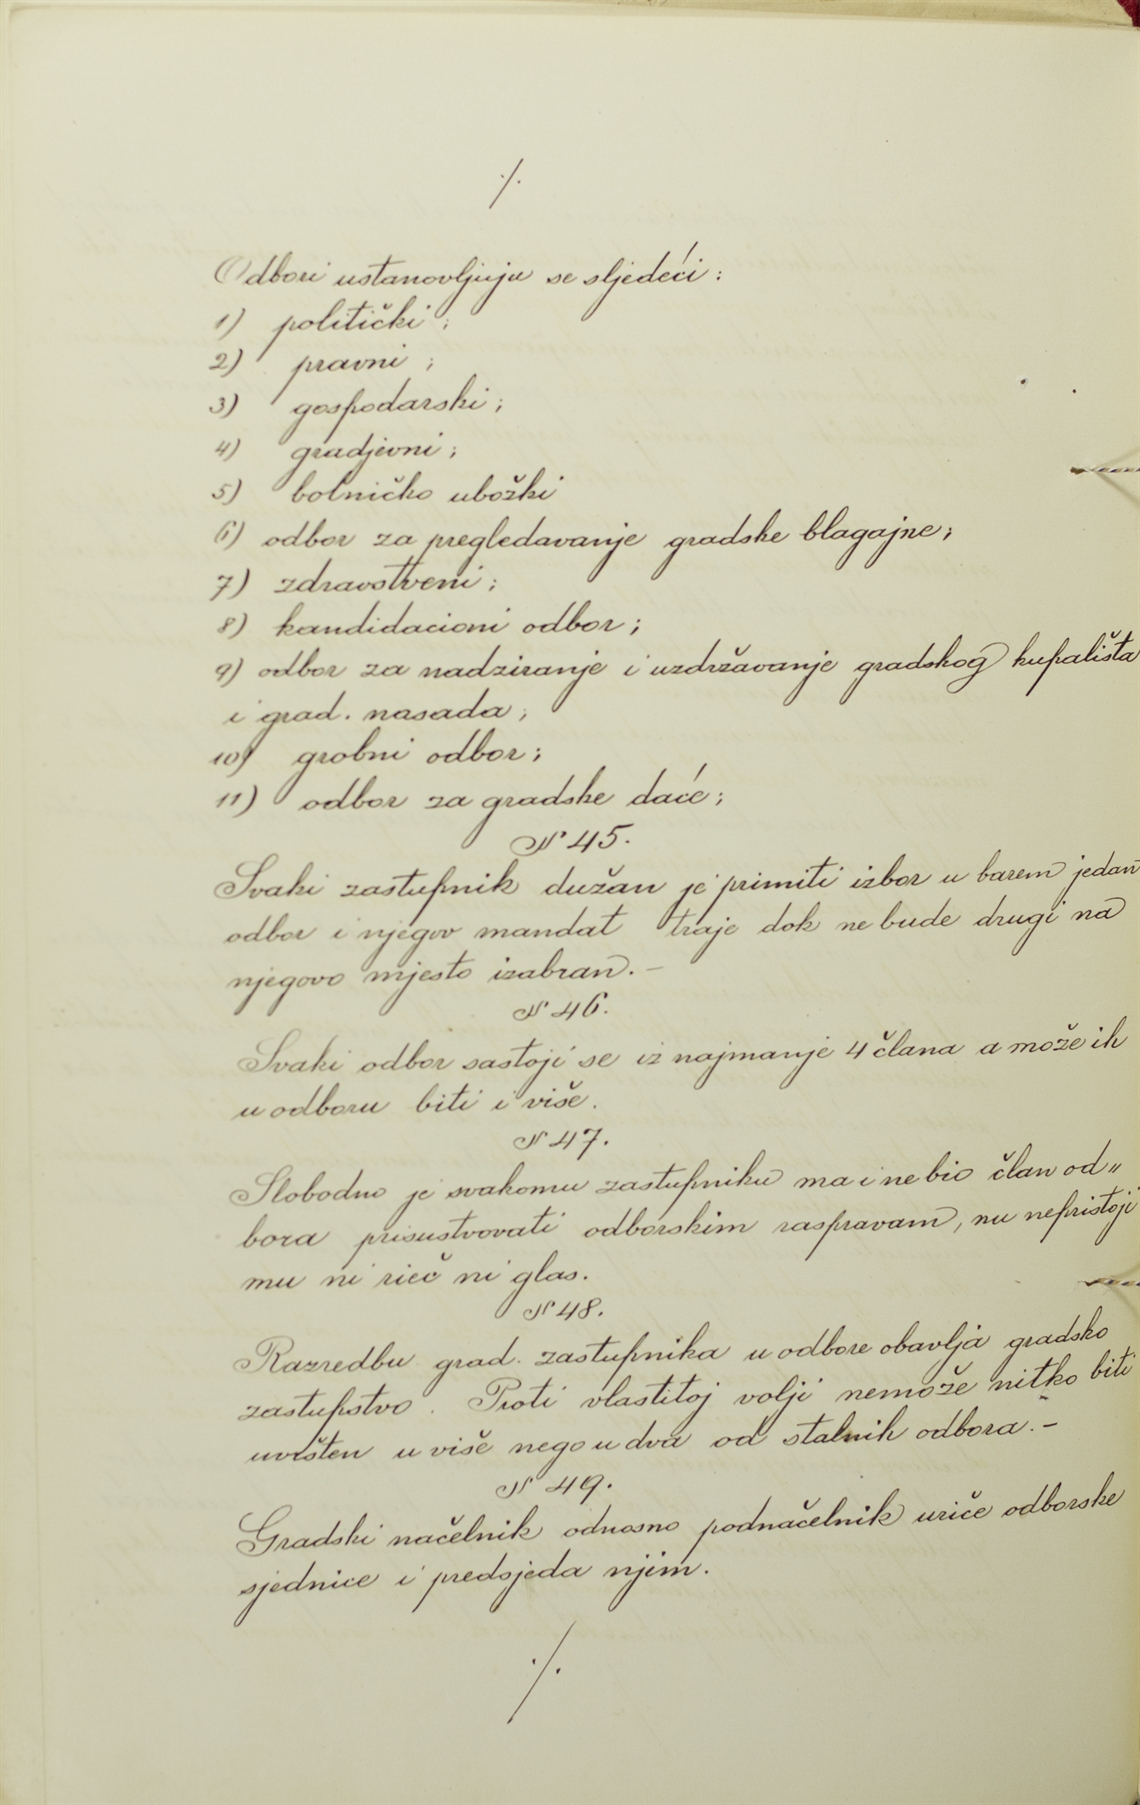 ./.
Odbori ustanovljuju se sljedeći:
1) politički;
2) pravni;
3) gospodarski;
4) gradjevni;
5) bolničko ubožki
6) odbor za pregledavanje gradske blagajne;
7) zdravstveni;
8) kandidacioni odbor;
9) odbor za nadziranje i uzdržavanje gradskog kupališta
i grad. nasada;
10) grobni odbor;
11) odbor za gradske daće;
№ 45.
Svaki zastupnik dužan je primiti izbor u barem jedan
odbor i njegov mandat traje dok ne bude drugi na
njegovo mjesto izabran.-
№ 46.
Svaki odbor sastoji se iz najmanje 4 člana a može ih
u odboru biti i više.
№ 47.
Slobodno je svakomu zastupniku ma i ne bio član od„
bora prisustvovati odborskim raspravam, nu nepristoji
mu ni rieč ni glas.
№ 48.
Razredbu grad. zastupnika u odbore obavlja gradsko
zastupstvo. Proti vlastitoj volji nemože nitko biti
uvršten u više nego u dva od stalnih odbora.-
№ 49.
Gradski načelnik odnosno podnačelnik uriče odborske
sjednice i predsjeda njim.
./.